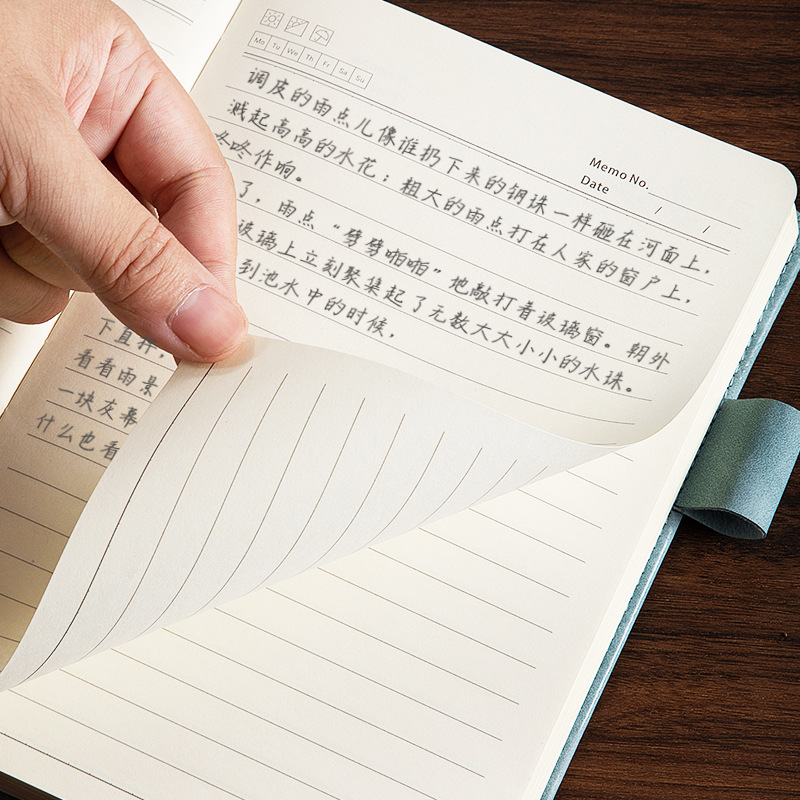 Mo Tu We Th Fr Sa Su
Memo No.
Date / /
调皮的雨点儿像谁扔下来的钢珠一样砸在河面上，
溅起高高的水花；粗大的雨点打在人家的窗户上，
冬咚作响。
了，雨点“劈劈啪啪”地敲打着玻璃窗。朝外
玻璃上立刻聚集起了无数大大小小的水珠。
到池水中的时候，
下直抖，
看看雨景
一块灰幕
什么也看